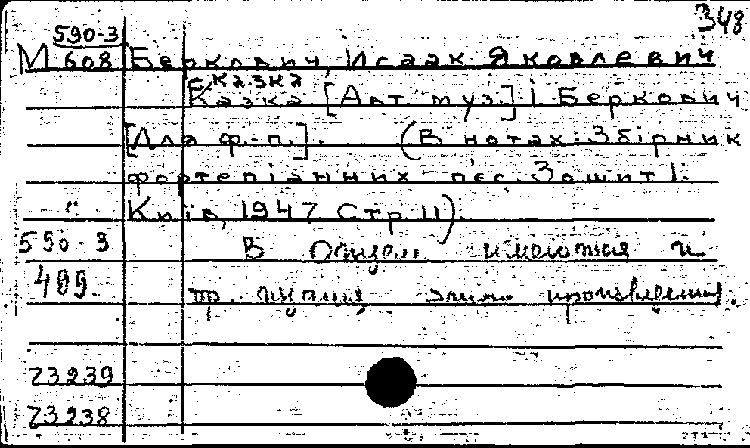 348
590-3
М 608 Беркович, Исаак Яковлевич
Казка
Казка [Авт. муз.] І. Беркович
[Для ф.-п.]. (В нотах: Збірник
фортепіанних п'єс. Зошит І.
" Київ, 1947. Стр. 11).
590-3 В Отделе имеются и
489. др. экземпл. этого произведения.
73239
73238